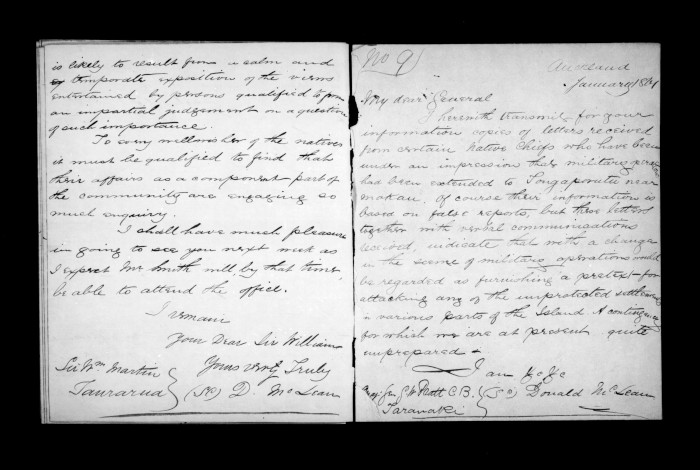 is likely to result from a calm and
temperate exposition of the views
entertained by persons qualified to form
an impartial judgement on a question
of such importance.
To every well wisher of the natives
it must be qualified to find that
their affairs as a component part of
the community are engaging so
much enquiry.
I shall have much pleasure
in going to see you next week as
I expect Mr Smith will by that time
be able to attend the office.
I remain
Your Dear Sir William
Yours very Truly
(Sd) D. McLean
Sir Wm Martin
Taurarua
No 9
Auckland
January 1861
My dear General
I herewith transmit for your
information copies of letters received
from certain Native Chiefs who have been
under an impression that military
has been extended to Tongaporutu near
Mokau, of course their information is
based on false reports, but these letters
together with verbal communications
received, indicate that with a change
in the scene of military operations would
be regarded as furnishing a pretext for
attacking any of the unprotected settlements
in various parts of the Island A contingency
for which we are at present quite
unprepared
I am &c &c
(Sd) Donald McLean
Maj Gen Pratt C.B.
Taranaki